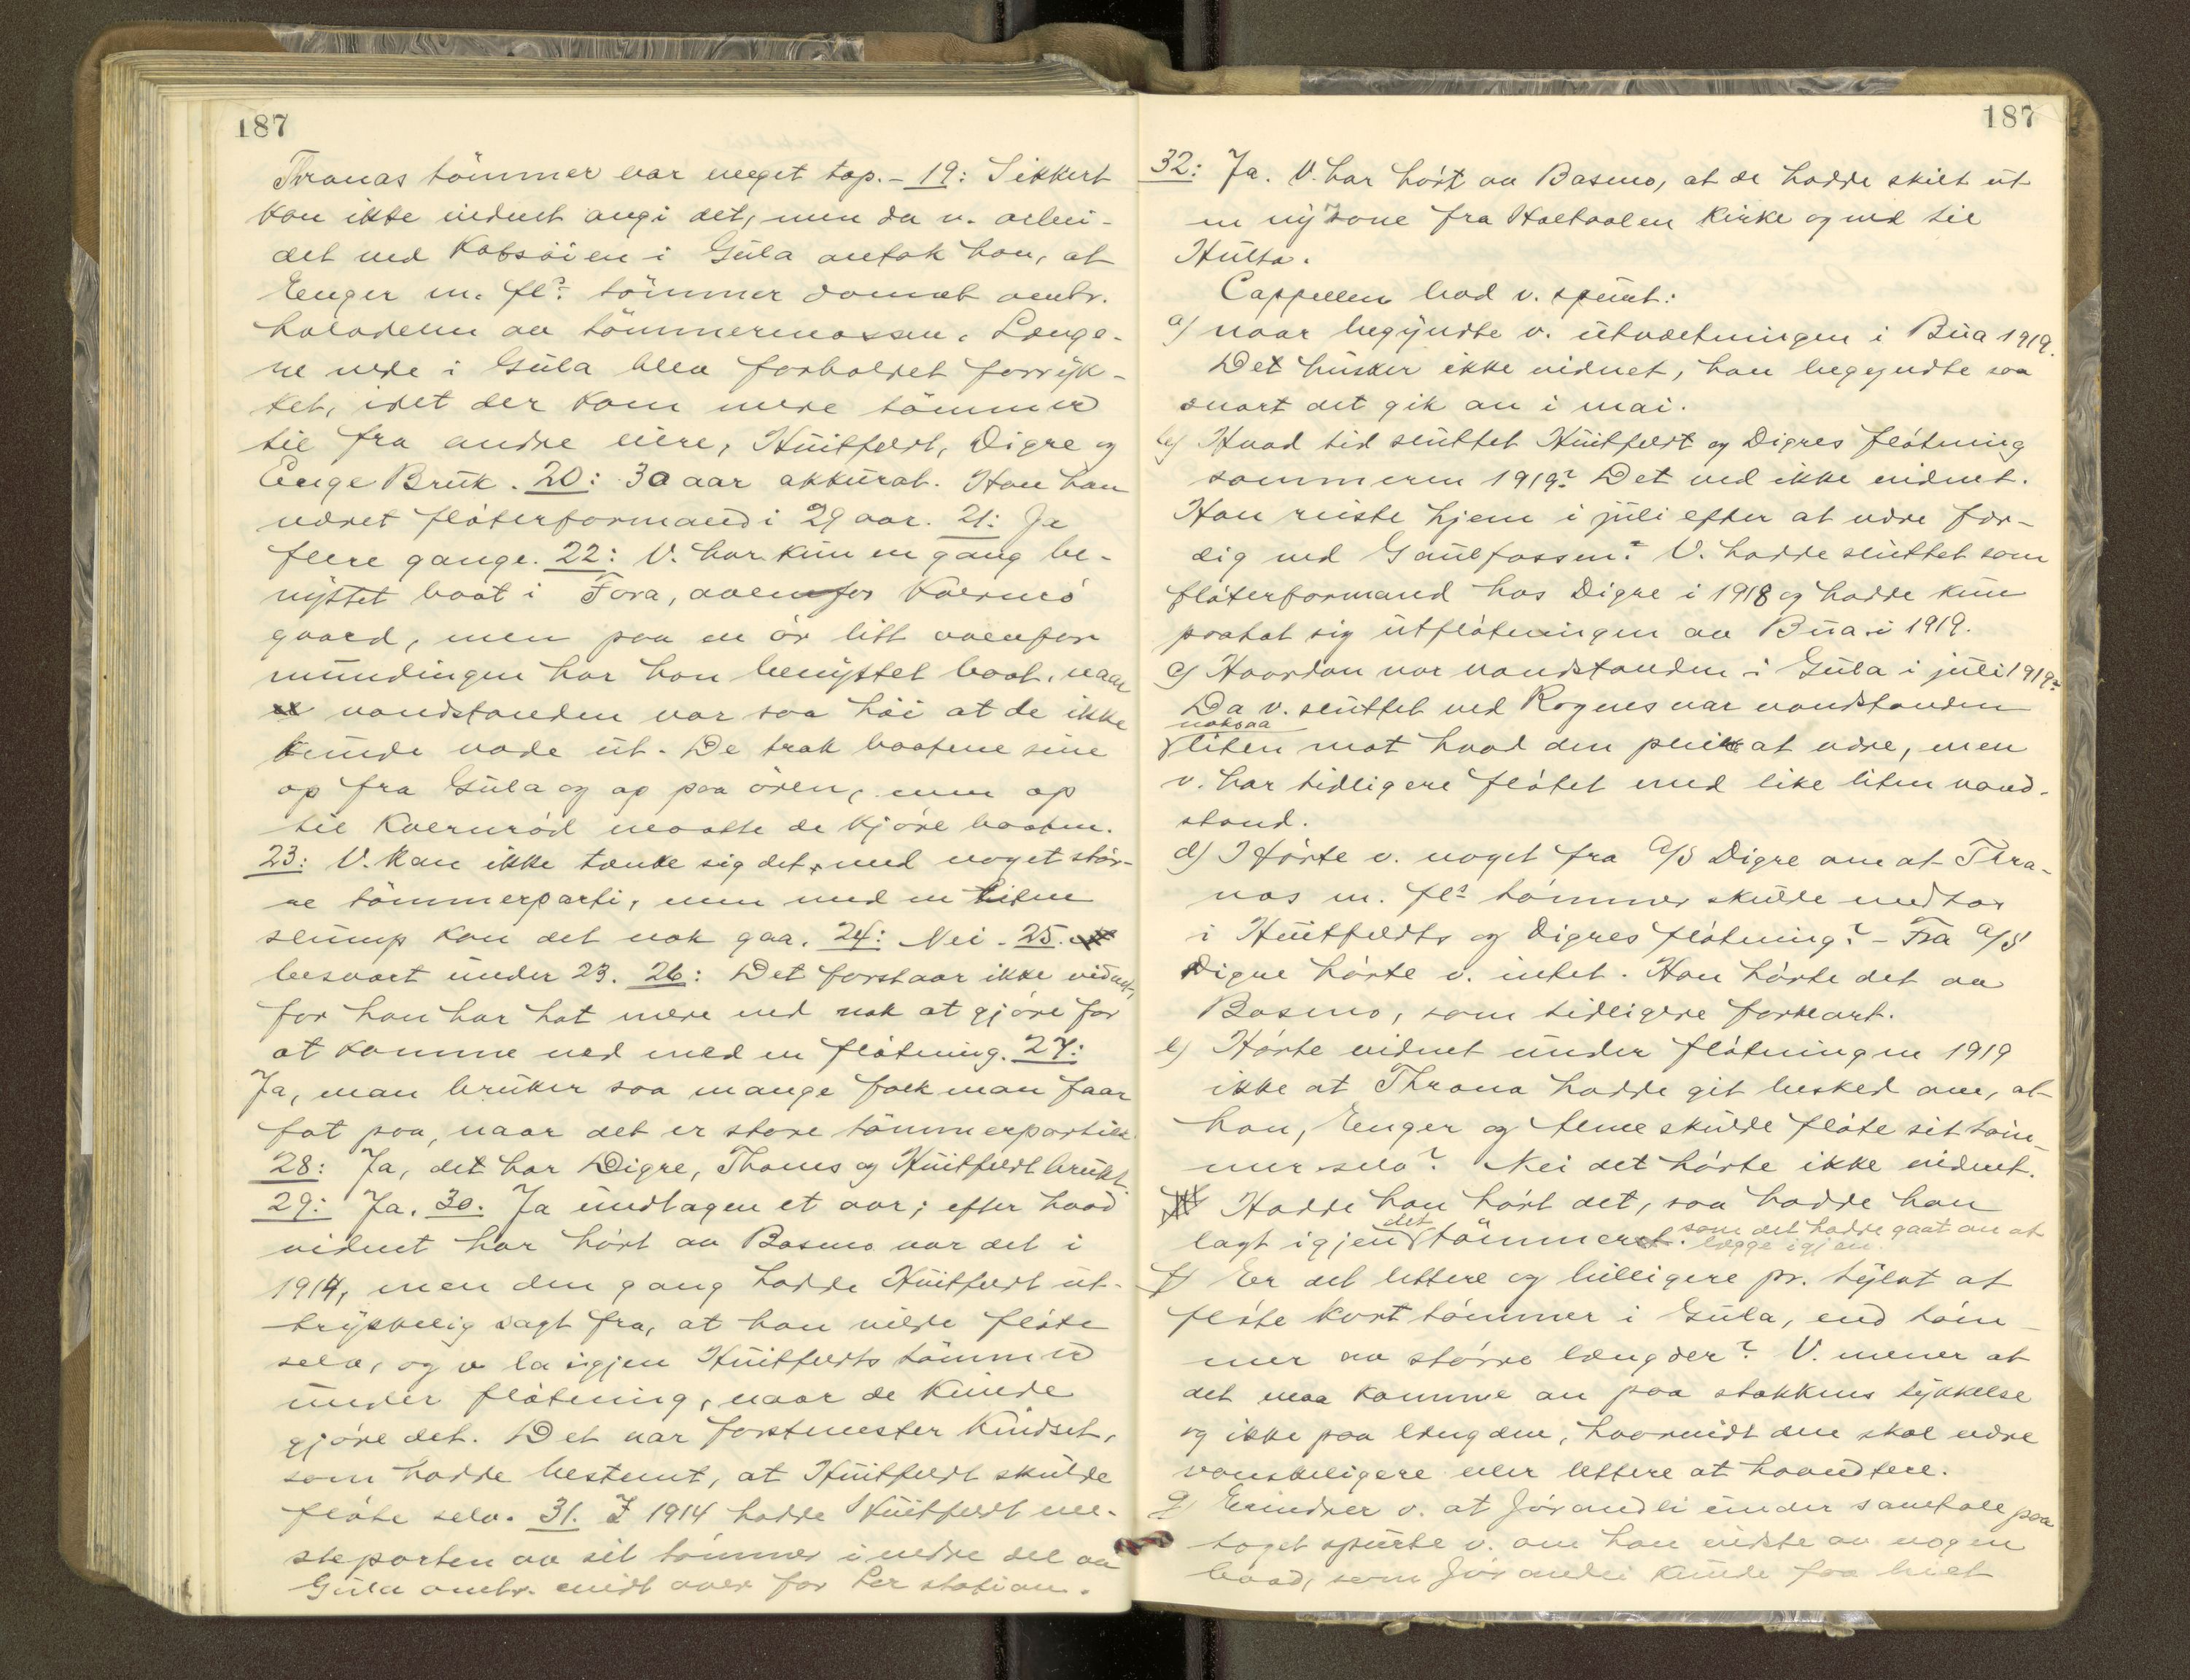 187
Thranas tömmer var meget tap. - 19: Sikkert
kan ikke vidnet angi det, men da v. arbei-
det ved Kobsöien i Gula antok han, at
Enger m. fl? tömmer dannet omtr.
halvdelen av tömmermassen. Længe-
re nede i Gula blev forholdet forryk-
ket, idet der kom mere tömmer
til fra andre eiere, Huitfeldt, Digre og
Enge Bruk. 20: 30 aar akkurat. Han har
været flöterformand i 29 aar. 21: Ja
flere gange. 22: V. har kun en gang be-
nyttet baat i Fora, ovenfor Kvernrö
gaard, men paa en ör litt ovenfor
mundingen har han benyttet baat, naar
vandstanden var saa höi at de ikke
kunde vade ut. De trak baatene sine
op fra Gula og op paa ören, men op
til Kvernröd maatte de kjöre baaten.
23: V. kan ikke tænke sig det, med noget stör-
re tömmerparti, men med en liten
slump kan det nok gaa. 24: Nei. 25.
besvart under 23. 26: Det forstaar ikke vidnet,
for han har hat mere end nok at gjöre for
at komme ned med en flötning. 27:
Ja, man bruker saa mange folk man faar
fat paa, naar det er store tömmerpartier.
28: Ja, det har Digre, Thams og Huitfeldt brukt.
29: Ja. 30. Ja undtagen et aar; efter hvad
vidnet har hört av Basmo var det i
1914, men den gang hadde Huitfeldt ut-
trykkelig sagt fra, at han vilde flöte
selv, og v la igjen Huitfeldts tömmer
under flötning, naar de kunde
gjöre det. Det var forstmester Kindset,
som hadde bestemt, at Huitfeldt skulde
flöte selv. 31. I 1914 hadde Huitfeldt me-
steparten av sit tömmer i nedre del av
Gula omtr. midt over for Ler station.
187
32: Ja. V. har hört av Basmo, at de hadde skilt ut
en ny sone fra Holtaalen kirke og ned til
Hulta.
Cappelen bad v. spurt:
a) naar begyndte v. utvæltningen i Bua 1919.
Det husker ikke vidnet, han begyndte saa
snart det gik an i mai.
b) Hvad tid sluttet Huitfeldt og Digres flötning
sommeren 1919? Det ved ikke vidnet.
Han reiste hjem i juli efter at være fær-
dig ved Gaulfossen. V. hadde sluttet som
flöterformand hos Digre i 1918 og hadde kun
paatat sig utflötningen av Bua i 1919.
c) Hvordan var vandstanden i Gula i juli 1919?
Da v. sluttet ved Rognes var vandstanden
noksaa
liten mot hvad den pleiet at være, men
v. har tidligere flötet med like liten vand-
stand.
d) Hörte v. noget fra A/S Digre om at Thra-
nas m. fl? tömmer skulde medtas
i Huitfeldts og Digres flötning? - Fra A/S
Digre hörte v. intet. Han hörte det av
Basmo, som tidligere forklart.
e) Hörte vidnet under flötningen 1919
ikke at Thrana hadde git besked om, at
han, Enger og flere skulde flöte sit töm-
mer selv? Nei det hörte ikke vidnet.
Hadde han hört det, saa hadde han
lagt igjen det tömmer som det hadde gaat an at
lægge igjen.
f) Er det lettere og billigere pr. tylvt at
flöte kort tömmer i Gula, end töm-
mer av större længder? V. mener at
det maa komme an paa stokkens tykkelse
og ikke paa længden, hvorvidt den skal være
vanskeligere eller lettere at haandtere.
g) Erindrer v. at Jörandli under samtale paa
toget spurte v. om han vidste av nogen
baad, som Jörandli kunde faa leiet